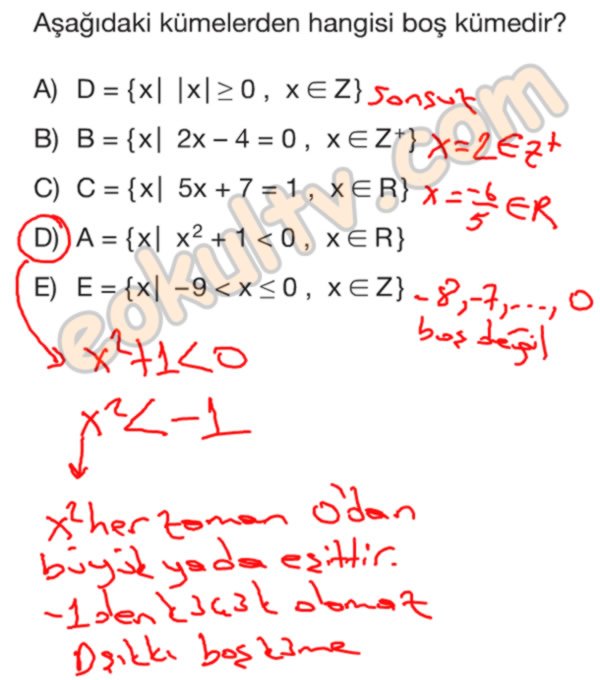 Aşağıdaki kümelerden hangisi boş kümedir?
A) D = {x| |x| ≥ 0 , x ∈ Z} sonsuz
B) B = {x| 2x – 4 = 0 , x ∈ Z⁺} x = 2 ∈ z⁺
C) C = {x| 5x + 7 = 1 , x ∈ R} x = -6/5 ∈ R
D) A = {x| x² + 1 < 0 , x ∈ R}
E) E = {x| –9 < x ≤ 0 , x ∈ Z} -8, -7, ..., 0
boş değil
x² + 1 < 0
x² < -1
x² her zaman 0'dan
büyük yada eşittir.
-1 den küçük olamaz
D şıkkı boş küme
eokultv.com